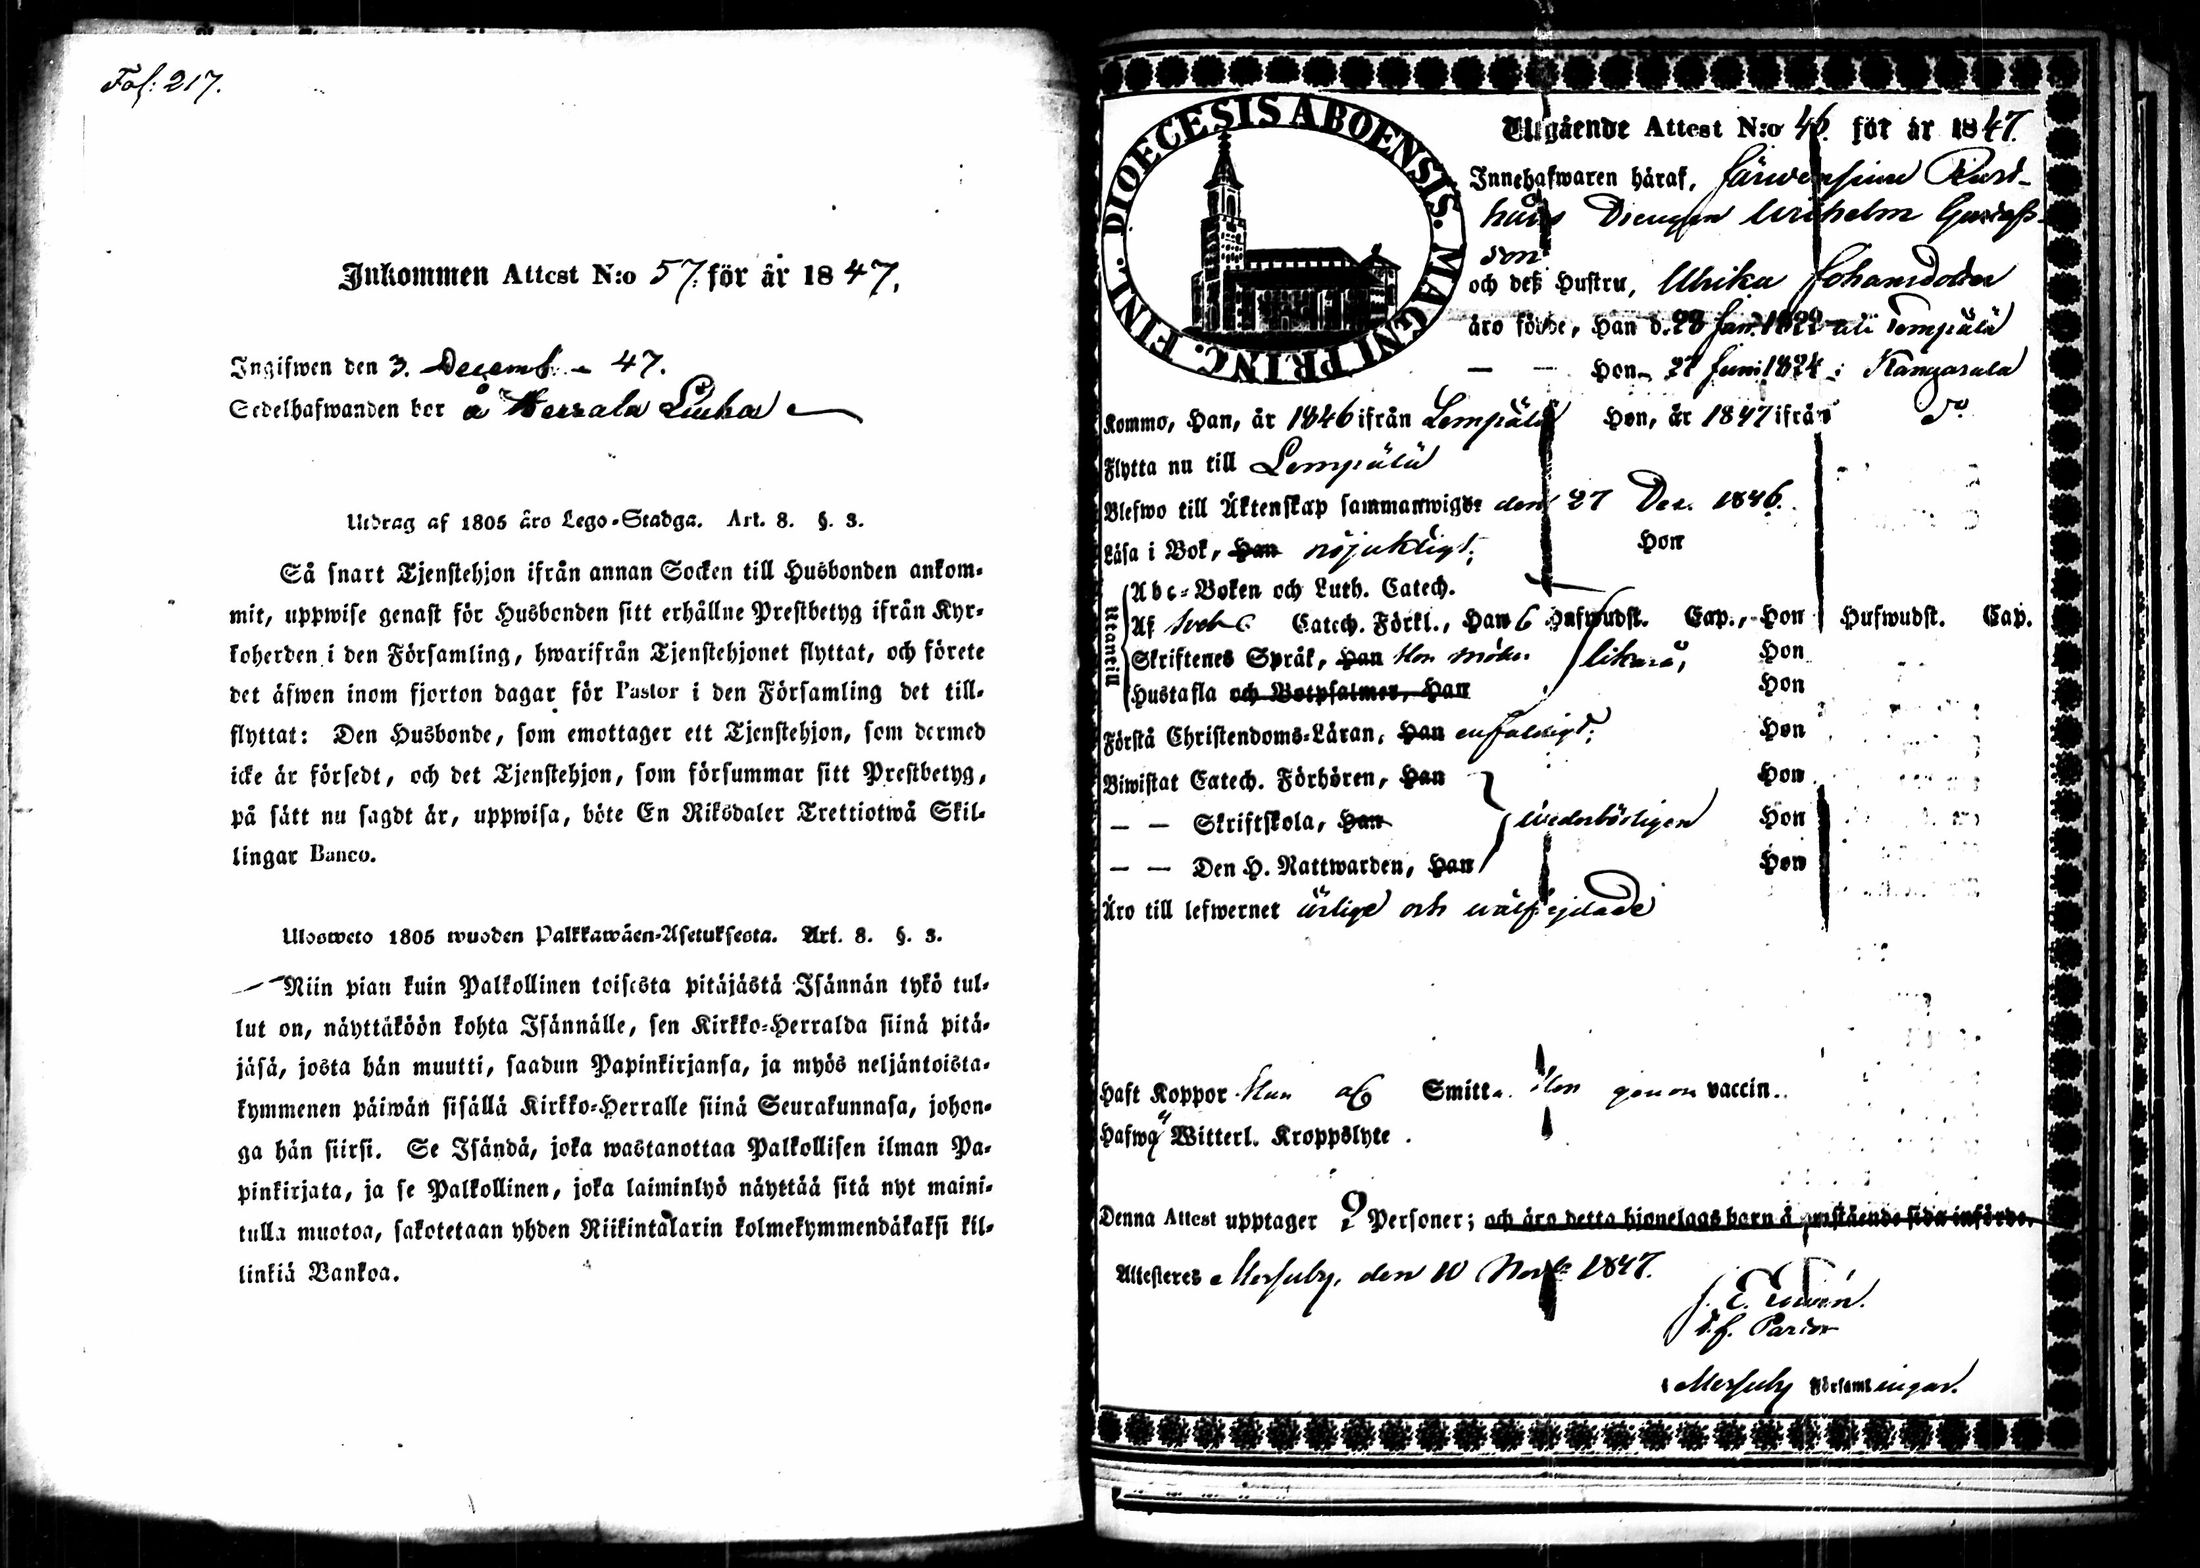 Fol: 217.
Inkommen Attest N:o 57. för år 1847.
Ingifwen den 3. Decemb. 47.
Sedelhafwanden bor å Herrala Liuha
Utdrag af 1805 års Lego-Stadga. Art. 8. §. 3.
Så snart Tjenstehjon ifrån annan Socken till Husbonden ankom-
mit, uppwise genast för Husbonden sitt erhållne Prestbetyg ifrån Kyr-
koherden i den Församling, hwarifrån Tjenstehjonet flyttat, och förete
det äfwen inom fjorton dagar för Pastor i den Församling det till-
flyttat: Den Husbonde, som emottager ett Tjenstehjon, som dermed
icke är försedt, och det Tjenstehjon, som försummar sitt Prestbetyg,
på sätt nu sagdt är, uppwisa, böte En Riksdaler Trettiotwå Skil-
lingar Banco.
Ulosweto 1805 wuoden Palkkawäen-Asetuksesta. Art. 8. §. 3.
Niin pian kuin Palkollinen toisesta pitäjästä Isännän tykö tul-
lut on, näyttäköön kohta Isännälle, sen Kirkko-Herralda siinä pitä-
jäsä, josta hän muutti, saadun Papinkirjansa, ja myös neljäntoista-
kymmenen päiwän sisällä Kirkko-Herralle siinä Seurakunnasa, johon-
ga hän siirsi. Se Isändä, joka wastanottaa Palkollisen ilman Pa-
pinkirjata, ja se Palkollinen, joka laiminlyö näyttää sitä nyt maini-
tulla muotoa, sakotetaan yhden Riikintalarin kolmekymmendäkaksi kil-
linkiä Bankoa.
DIOECESIS ABOENSIS. MAGNI PRINC. FINL.
Utgående Attest N:o 46 för år 1847.
Innehafwaren häraf, Järwensiwu Rust-
hålls Drengen Wilhelm Gustafs-
son
och deß Hustru, Ulrika Johansdotter
äro födde, Han d. 28 Jan. 1822 uti Lempälä
— — Hon 27 Juni 1824 i Kangasala
Kommo, Han, år 1846 ifrån Lempälä Hon, år 1847 ifrån do
Flytta nu till Lempälä
Blefwo till Äktenskap sammanwigde den 27 Dec. 1846.
Läsa i Bok, Han nöjaktigt; Hon
Utantill
Abc-Boken och Luth. Catech.
Af Catech. Förkl., Han 6 Hufwudst. Cap., Hon Hufwudst. Cap.
Skriftenes Språk, Han Hon Hon
Hustafla och Botpsalmer, Han Hon
Förstå Christendoms-Läran, Han enfaldigt; Hon
Biwistat Catech. Förhören, Han Hon
— — Skriftskola, Han wederbörligen Hon
— — Den H. Nattwarden, Han Hon
Äro till lefwernet ärlige och wälfrejdade
Haft Koppor Han af Smitta Hon genom vaccin.
Hafwa Witterl. Kroppslyte.
Denna Attest upptager 2 Personer; och äro detta hjonelags barn å omstående sida införde.
Attesteres Messuby, den 10 Novbr 1847.
T.f. Pastor
i Messuby Församlingar.